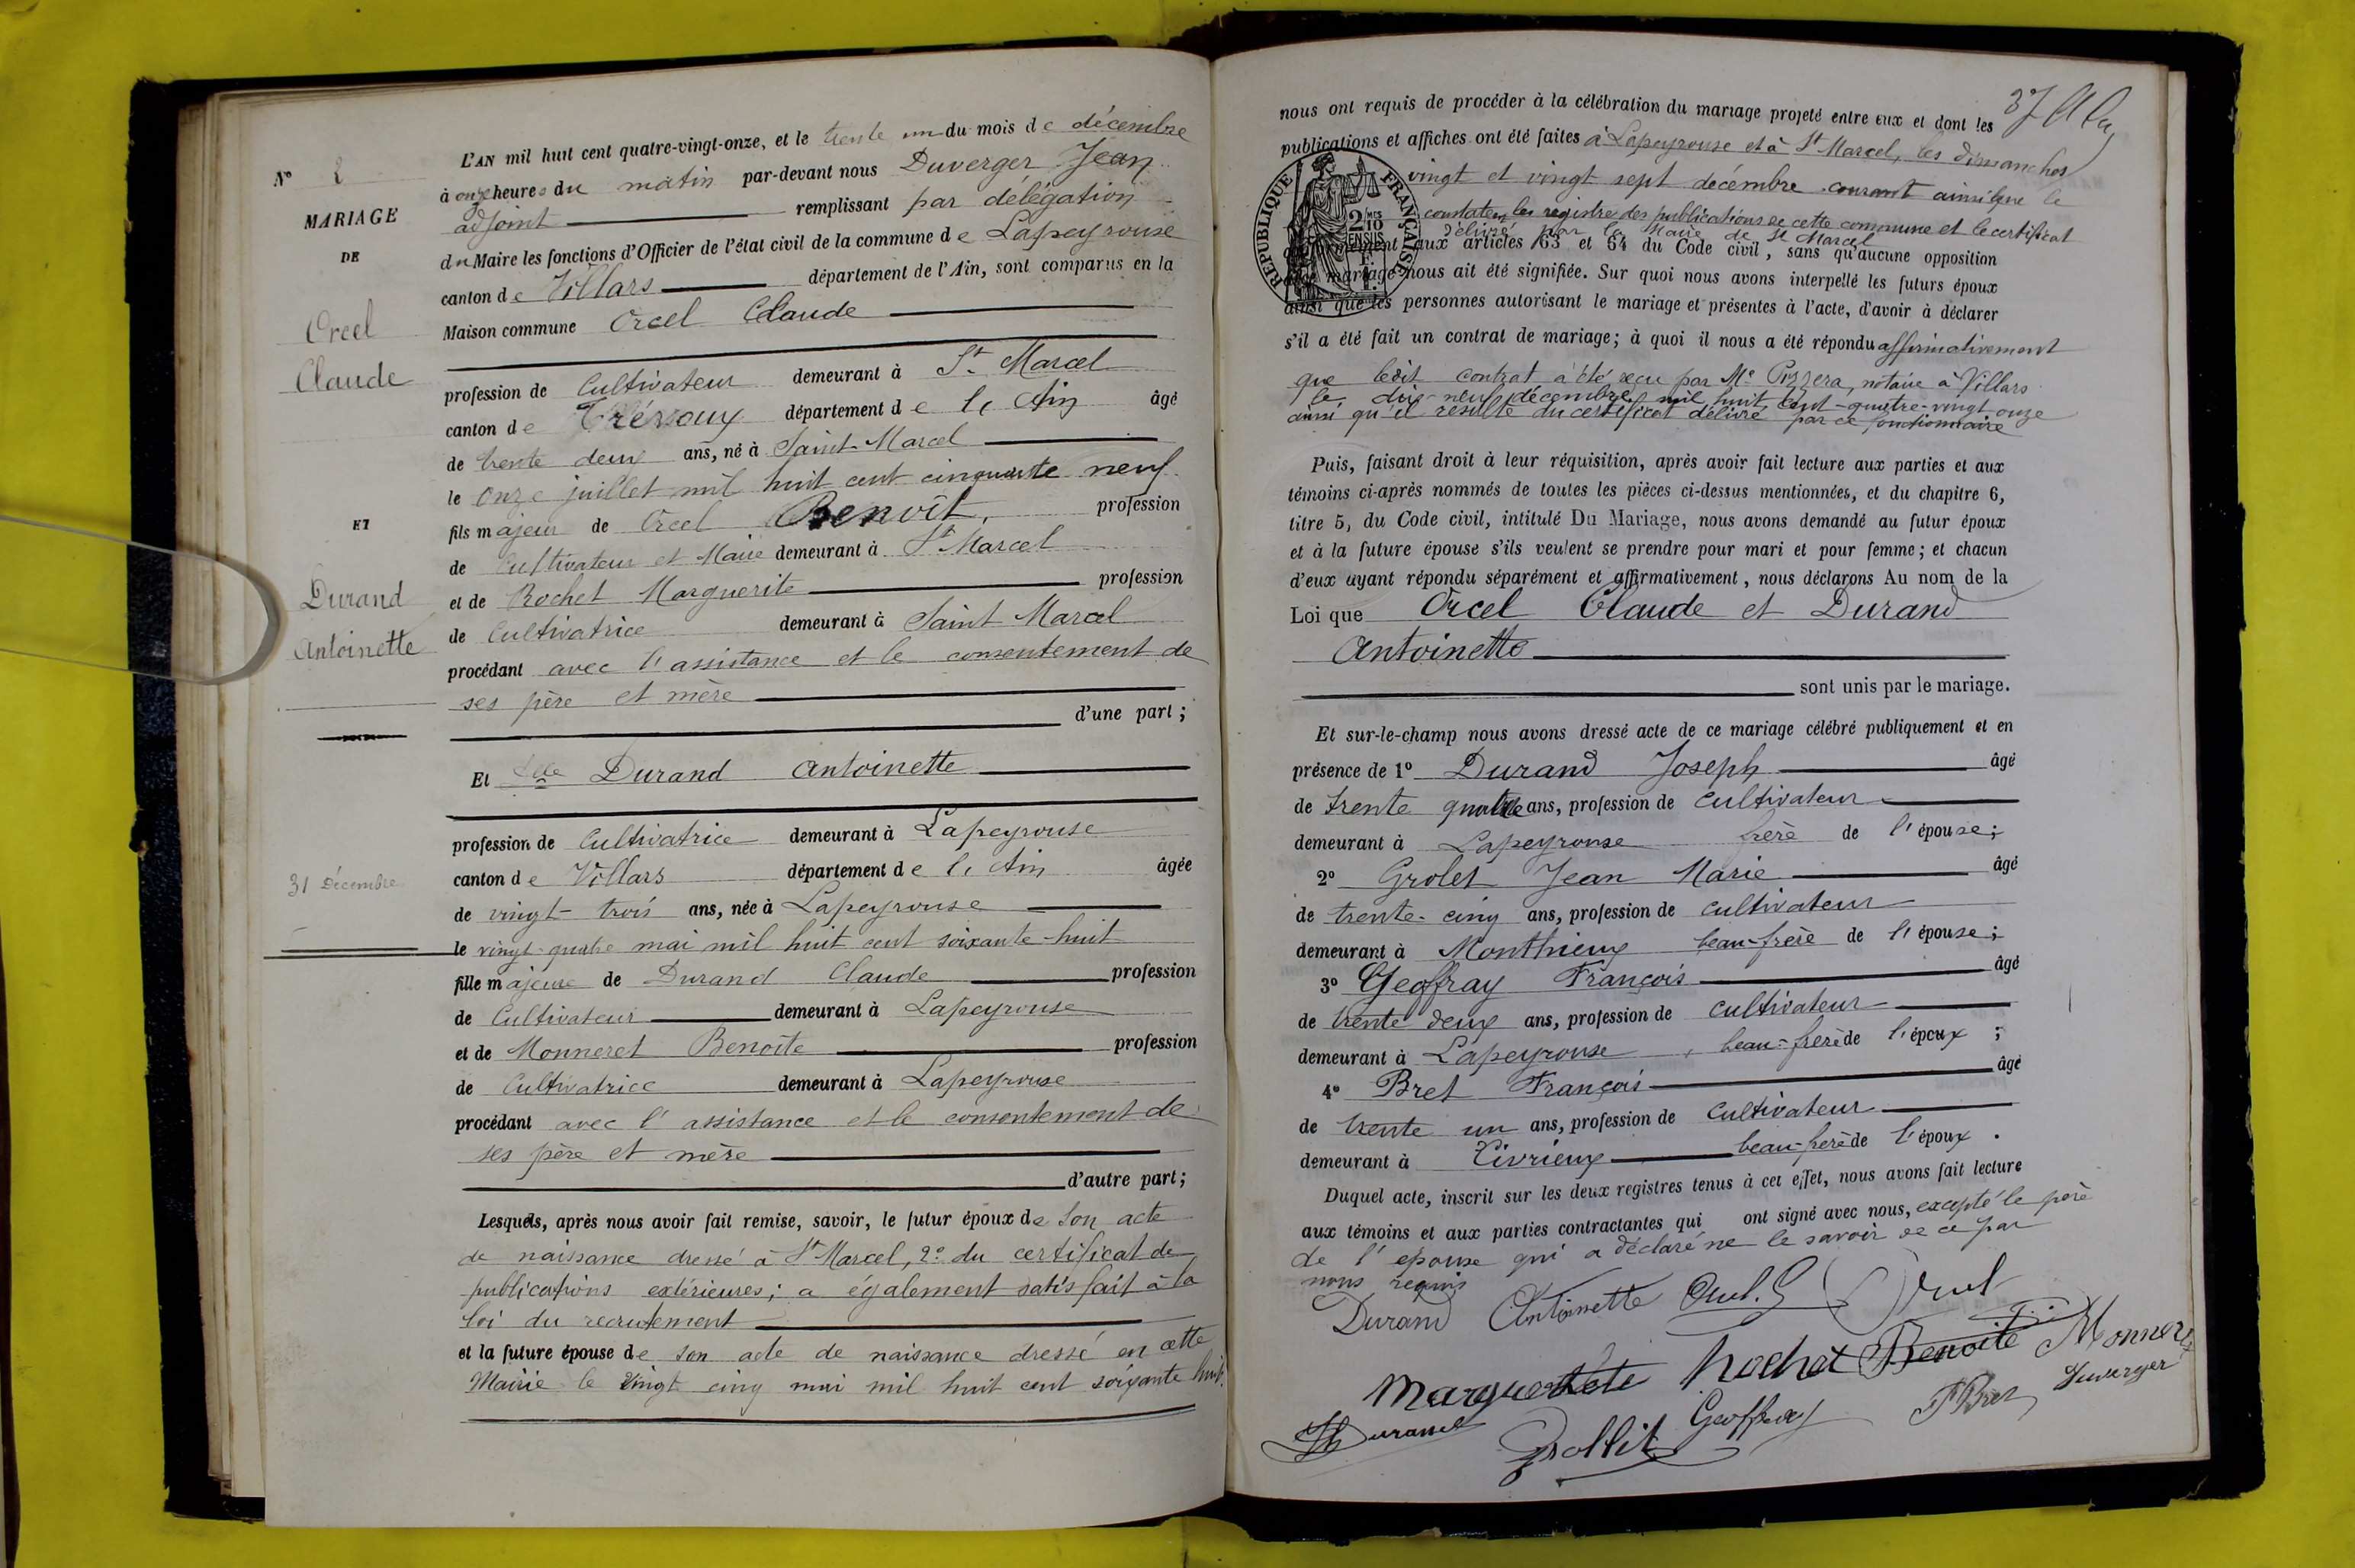 N° 2
MARIAGE
DE
Orcel
Claude
ET
Durand
Antoinette
31 Décembre
L'AN mil huit cent quatre-vingt-onze, et le trente un du mois de décembre
à onze heures du matin par-devant nous Duverger Jean
adjoint remplissant par délégation
du Maire les fonctions d'Officier de l'état civil de la commune de Lapeyrouse
canton de Villars département de l'Ain, sont comparus en la
Maison commune Orcel Claude
profession de Cultivateur demeurant à St Marcel
canton de Trévoux département de l'Ain âgé
de trente deux ans, né à Saint-Marcel
le onze juillet mil huit cent cinquante neuf
fils majeur de Orcel Benoît, profession
de Cultivateur et Maire demeurant à St Marcel
et de Rochet Marguerite profession
de Cultivatrice demeurant à Saint Marcel
procédant avec l'assistance et le consentement de
ses père et mère
d'une part;
Et Delle Durand Antoinette
profession de Cultivatrice demeurant à Lapeyrouse
canton de Villars département de l'Ain âgée
de vingt-trois ans, née à Lapeyrouse
le vingt-quatre mai mil huit cent soixante-huit
fille majeure de Durand Claude profession
de Cultivateur demeurant à Lapeyrouse
et de Monneret Benoite profession
de Cultivatrice demeurant à Lapeyrouse
procédant avec l'assistance et le consentement de
ses père et mère
d'autre part;
Lesquels, après nous avoir fait remise, savoir, le futur époux de son acte
de naissance dressé à St Marcel, 2° du certificat de
publications extérieures; a également satisfait à la
loi du recrutement
et la future épouse de son acte de naissance dressé en cette
Mairie le vingt cinq mai mil huit cent soixante huit.
37
nous ont requis de procéder à la célébration du mariage projeté entre eux et dont les
publications et affiches ont été faites à Lapeyrouse et à St Marcel, les dimanches
vingt et vingt sept décembre courant ainsi que le
constatent les registre des publications de cette commune et le certificat
délivré par la Mairie de St Marcel
aux articles 63 et 64 du Code civil, sans qu'aucune opposition
mariage nous ait été signifiée. Sur quoi nous avons interpellé les futurs époux
ainsi que les personnes autorisant le mariage et présentes à l'acte, d'avoir à déclarer
s'il a été fait un contrat de mariage; à quoi il nous a été répondu affirmativement
que ledit contrat a été reçu par Me Pizzera, notaire à Villars
le dix-neuf décembre mil huit cent-quatre-vingt onze
ainsi qu'il résulte du certificat délivré par ce fonctionnaire
RÉPUBLIQUE FRANÇAISE
2/10
EN SUS
Puis, faisant droit à leur réquisition, après avoir fait lecture aux parties et aux
témoins ci-après nommés de toutes les pièces ci-dessus mentionnées, et du chapitre 6,
titre 5, du Code civil, intitulé Du Mariage, nous avons demandé au futur époux
et à la future épouse s'ils veulent se prendre pour mari et pour femme; et chacun
d'eux ayant répondu séparément et affirmativement, nous déclarons Au nom de la
Loi que Orcel Claude et Durand
Antoinette
sont unis par le mariage.
Et sur-le-champ nous avons dressé acte de ce mariage célébré publiquement et en
présence de 1° Durand Joseph âgé
de trente quatre ans, profession de cultivateur
demeurant à Lapeyrouse frère de l'épouse;
2° Grolet Jean Marie âgé
de trente-cinq ans, profession de cultivateur
demeurant à Monthieux beau-frère de l'épouse;
3° Geoffray François âgé
de trente deux ans, profession de cultivateur
demeurant à Lapeyrouse, beau-frère de l'époux;
4° Bret François âgé
de trente un ans, profession de cultivateur
demeurant à Civrieux beau-frère de l'époux.
Duquel acte, inscrit sur les deux registres tenus à cet effet, nous avons fait lecture
aux témoins et aux parties contractantes qui ont signé avec nous, excepté le père
de l'épouse qui a déclaré ne le savoir de ce par
nous requis
Durand Antoinette Orcel. Orcel
Marguerite Rochet Benoite Monneret
Durand Grollit Geoffray F Bret Duverger